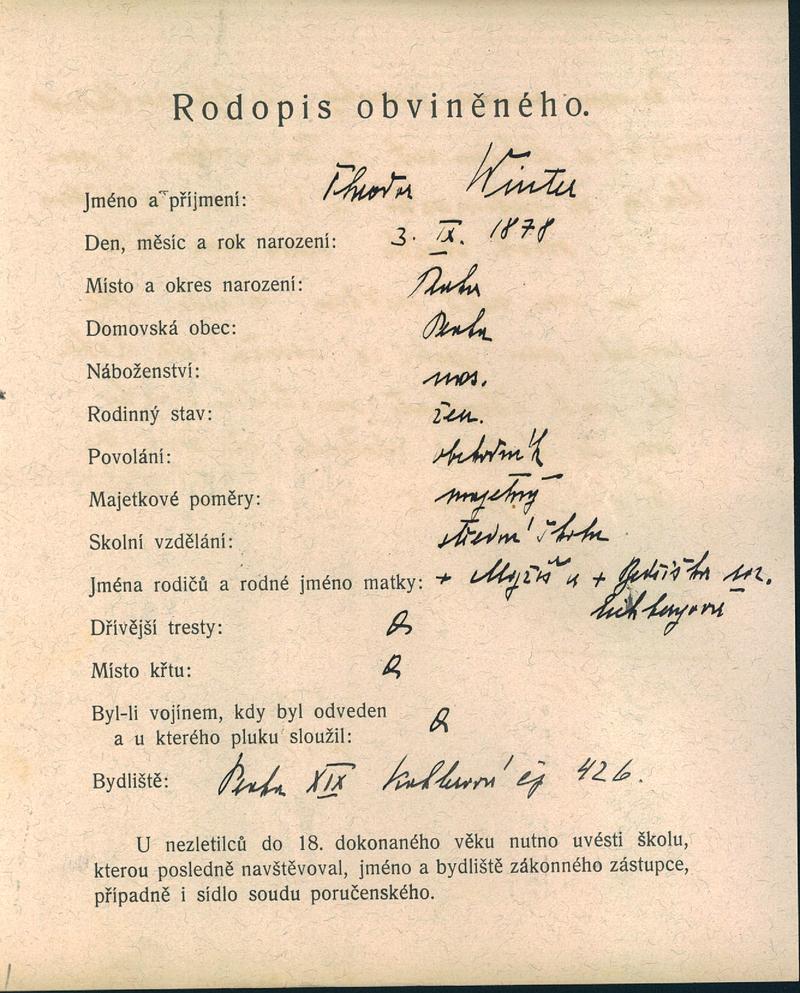 Rodopis obviněného.
Jméno a příjmení: Theodor Winter
Den, měsíc a rok narození: 3. IX. 1878
Místo a okres narození: Praha
Domovská obec: Praha
Náboženství: mos.
Rodinný stav: žen.
Povolání: obchodník
Majetkové poměry: majetný
Skolní vzdělání: střední škola
Jména rodičů a rodné jméno matky: + Mojžíš a + roz.
Dřívější tresty: 0
Místo křtu: 0
Byl-li vojínem, kdy byl odveden
a u kterého pluku sloužil: 0
Bydliště: Praha XIX čp 426.
U nezletilců do 18. dokonaného věku nutno uvésti školu,
kterou posledně navštěvoval, jméno a bydliště zákonného zástupce,
případně i sídlo soudu poručenského.